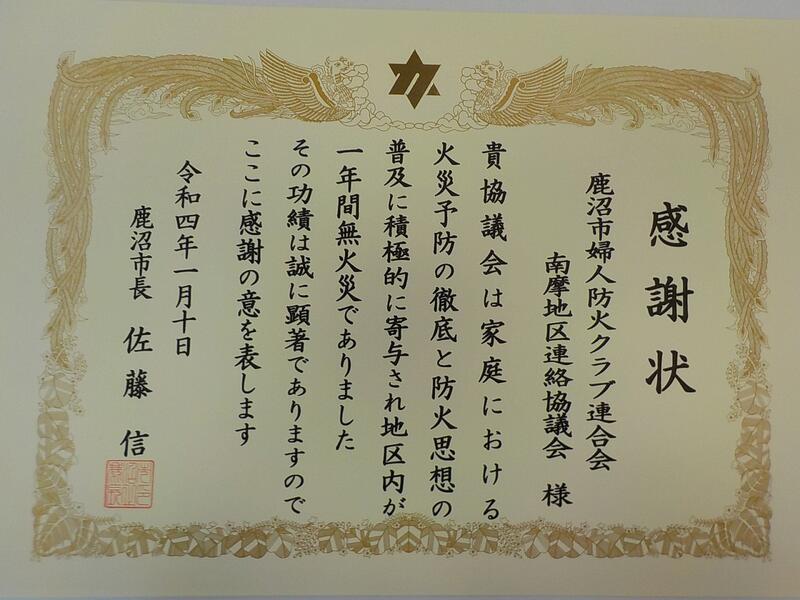 感謝状
鹿沼市婦人防火クラブ連合会
南摩地区連絡協議会 様
貴協議会は家庭における
火災予防の徹底と防火思想の
普及に積極的に寄与され地区内が
一年間無火災でありました
その功績は誠に顕著でありますので
ここに感謝の意を表します
令和四年一月十日
鹿沼市長 佐藤 信